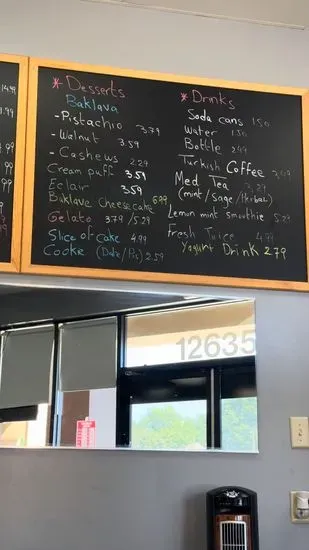 14.99
1.99
4.99
.99
7.99
.99
* Desserts
Baklava
-Pistachio 3.79
-Walnut 3.59
-Cashews 2.29
Cream puff 3.59
Eclair 3.59
Baklava Cheesecake 6.99
Gelato 3.79/5.29
Slice of cake 4.99
Cooke (Date/Pis) 2.59
* Drinks
Soda cans 1.50
water 1.50
Bottle 2.99
Turkish Coffee
Med Tea
(mint/sage/Herbal)
Lemon mint smoothie 5.29
Fresh Juice 4.99
Yogurt Drink 2.79
12635